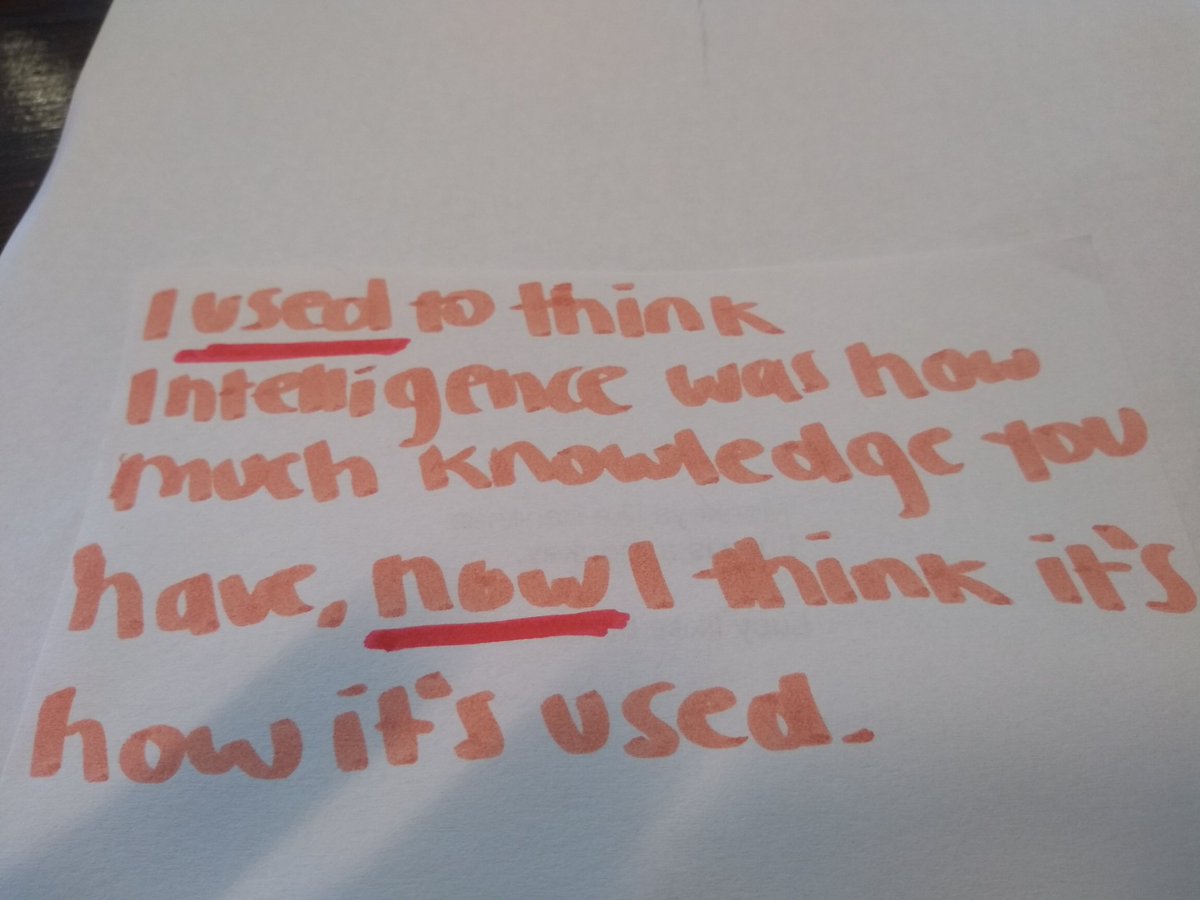 I used to think
Intelligence was how
much knowledge you
have, now I think it's
how it's used.